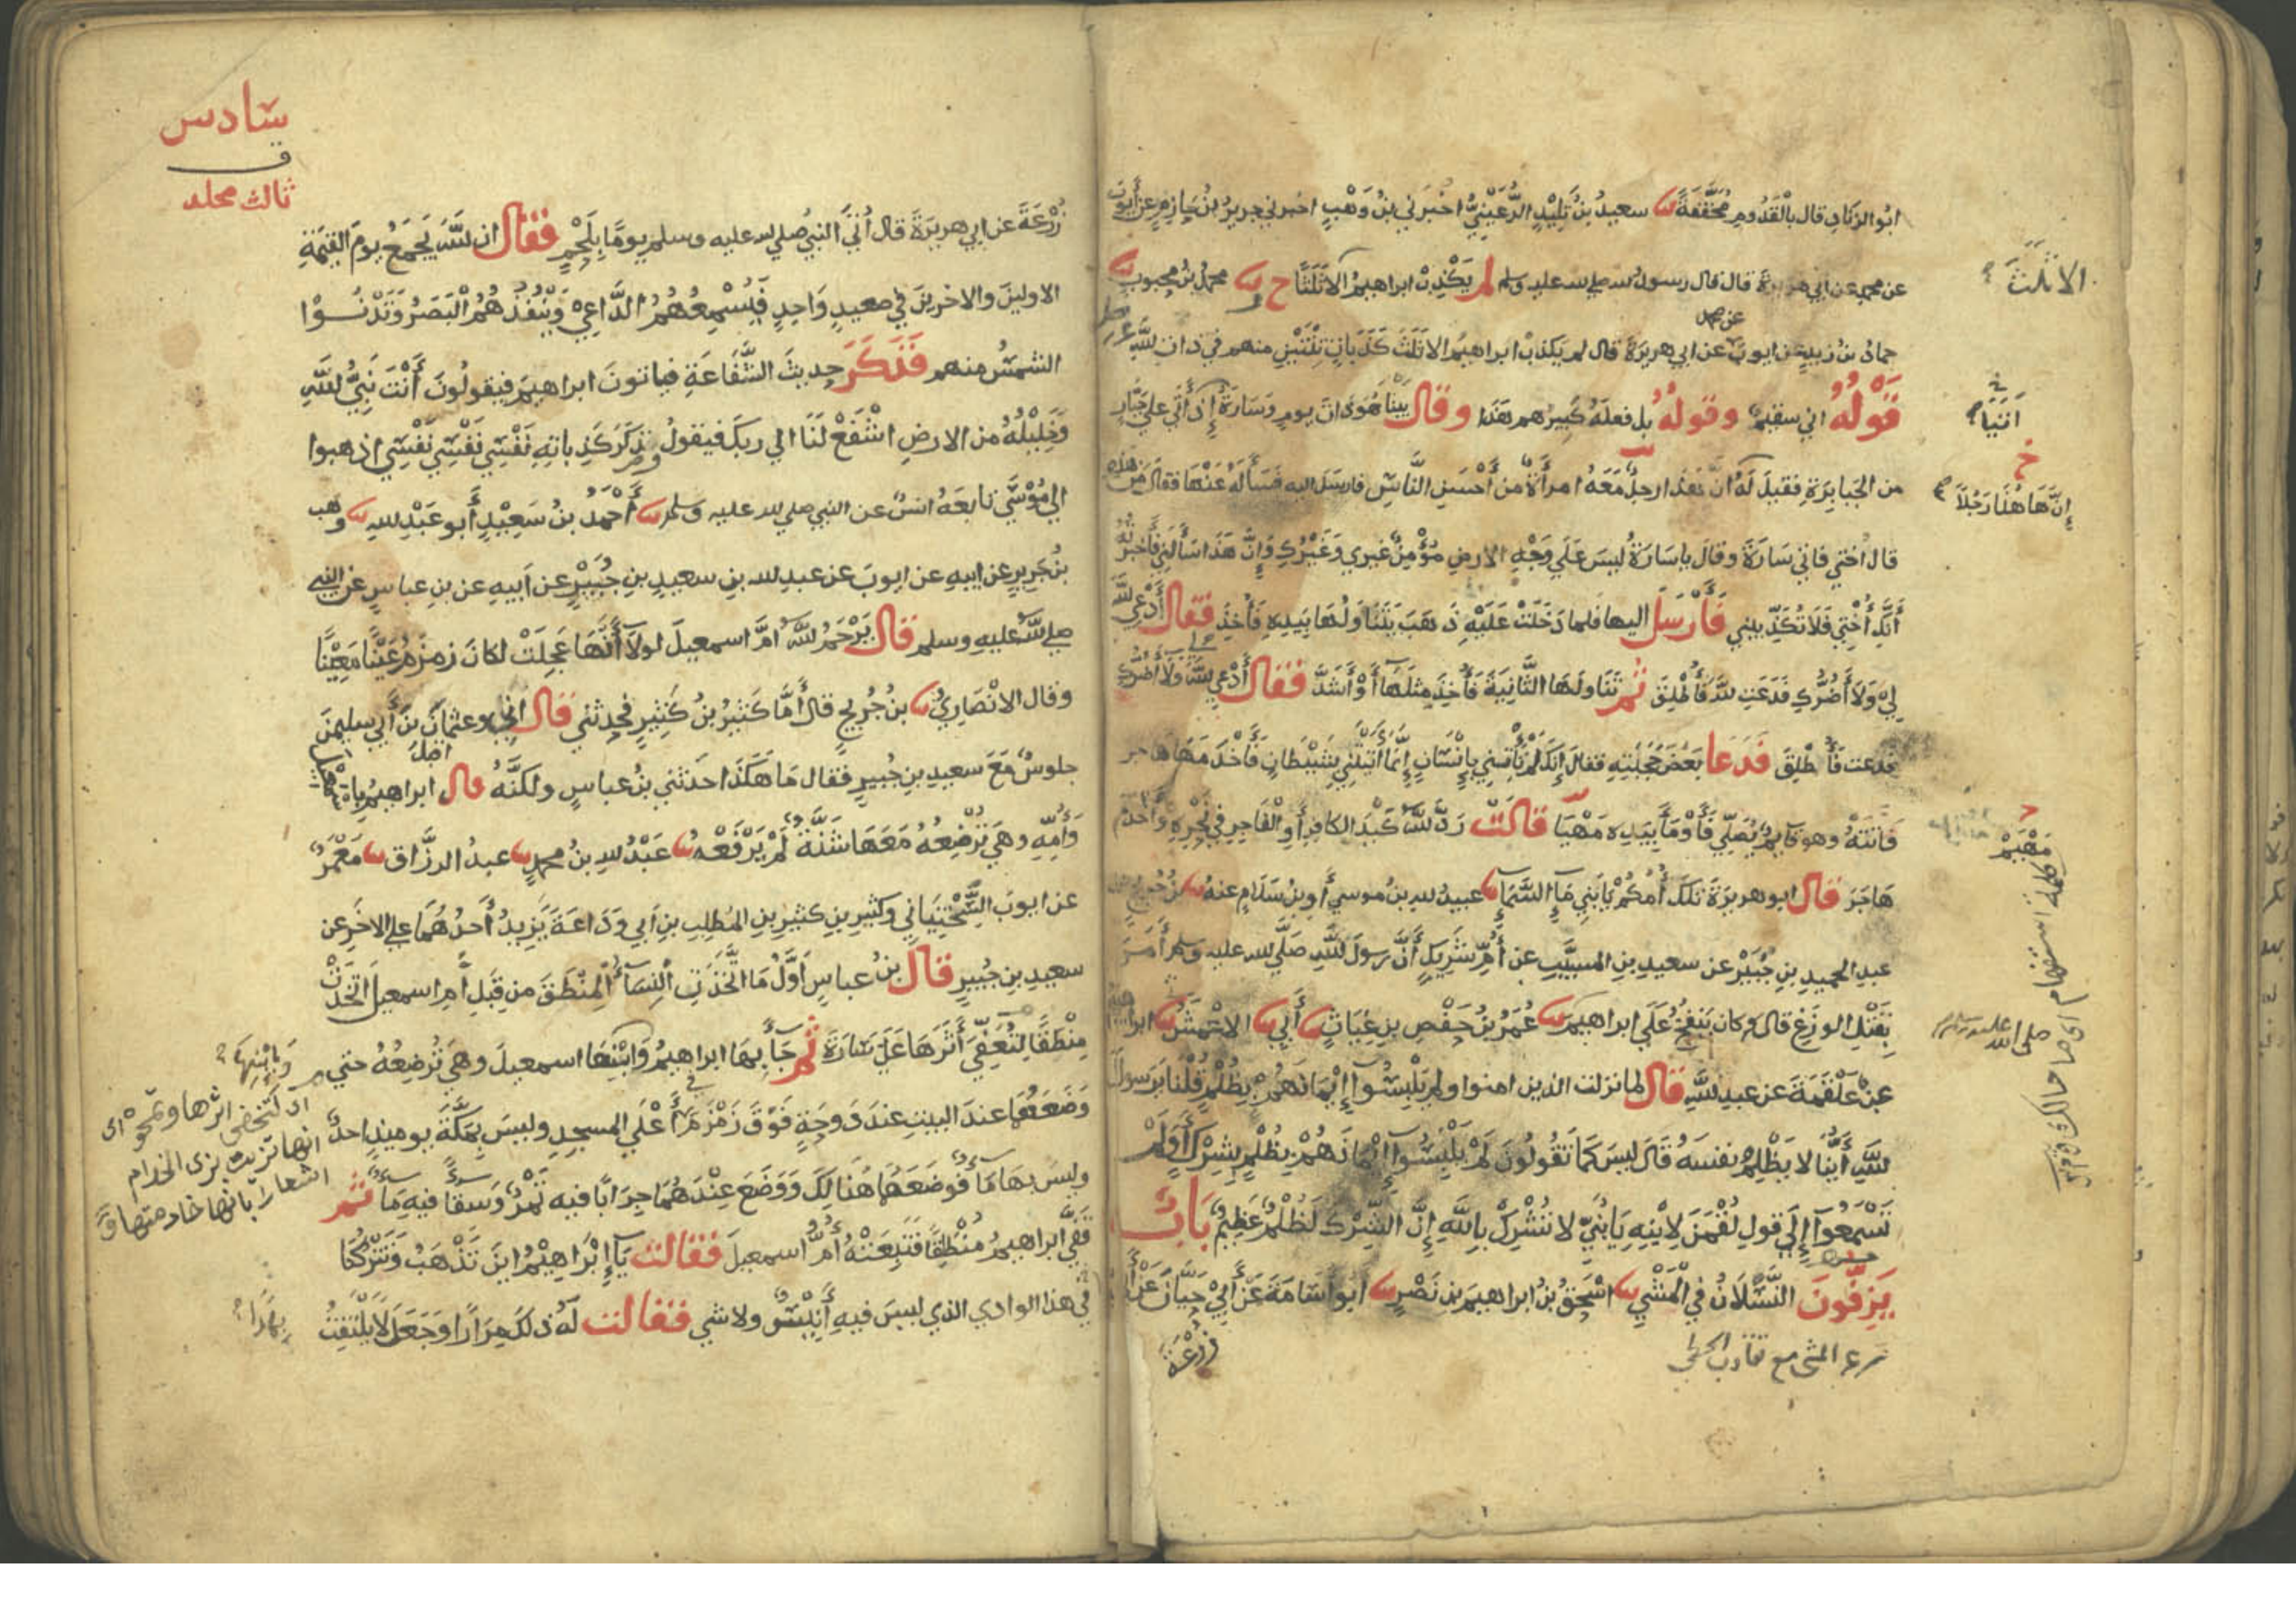 ابُو الزِنَادِ قال بالْقَدُومِ مُخَفَّفَةً ثنا سعيدُ بنُ تَلِيْدٍ الرُّعَيْنِيُّ اخْبَرَني بنُ وَهْبٍ اخبرني جريرُ بنُ حَازِمٍ عن أيوبَ
عن محمدٍ عن ابي هريرةَ قال قال رسول الله صلي الله عليه وسلم لم يَكْذِبْ ابراهيمُ الا ثَلَثًا ح وثنا محمدُ بنُ محبوبٍ ثنا
حمادُ بنُ زيدٍ عن ايوبَ عن محمد عن ابي هريرةَ قال لم يكذبْ ابراهيمُ الا ثَلَثَ كَذَبَاتٍ ثِنْتَيْنِ منهم في ذات اللهِ
قَوْلُهُ اني سقيمٌ وقولُهُ بل فعلَهُ كَبِيرُهم هَذَا وقال بَيْنَا هُوَ ذاتَ يومٍ وَسَارَةُ إِذْ أَتَي علي جَبَّارٍ
من الجَبَابِرَةِ فقيلَ لَهُ انَّ هَذَا رجلٌ مَعَهُ امرأَةٌ من أَحْسَنِ النَّاسِ فارسَلَ اليه فسَأَلَهُ عَنْهَا فقال مَنْ هَذِه
قال اُخْتي فاتي سَارَةَ وقالَ يا سَارَةُ ليسَ عَلَي وَجْهِ الارضِ مُؤْمِنٌ غيري وغَيْرُكِ وَإِنَّ هَذَا سَأَلَنِي فَأَخْبَرْتُهُ
أَنَّكِ أُخْتِي فَلَا تُكَذِّبِيني فَأَرْسَلَ اليها فلما دَخَلَتْ عَلَيْهِ ذَهَبَ يَتَنَاوَلُهَا بِيَدِهِ فَأُخِذَ فقال أُدْعِي اللهَ
لِي وَلَا أَضُرُّكِ فَدَعَتِ اللهَ فَأُطْلِقَ ثم تَنَاولَهَا الثَّانِيَةَ فَأُخِذَ مِثْلَهَا أَوْ أَشَدَّ فقال أُدْعِي اللهَ لي وَلَا أَضُرُّكِ
فدعت فَأُطْلِقَ فَدَعَا بَعْضَ حَجَبَتِهِ فقالَ إِنَّكَ لم تَأْتِنِي بإِنْسَانٍ إِنَّمَا أَتَيْتَنِي بِشَيْطَانٍ فَأَخْدَمَهَا هاجر
فَأَتَتْهُ وهو قايمٌ يُصَلِّي فَأَوْمَأَ بِيَدِه مَهْيَا قَالَتْ رَدَّ اللهُ كَيْدَ الكافِرِ أَوِ الْفَاجِرِ فِي نَحْرِهِ وَأَخْدَمَ
هَاجَرَ قَال ابو هريرَةَ تلكَ أُمُّكُمْ يَا بَنِي مَآءِ السَّمَآءِ ثنا عبيدُ اللهِ بنُ موسي أَوِ بنُ سَلَامٍ عنهُ ثنا بنُ جُرَيجٍ عن
عبد الحميدِ بنِ جُبَيْرٍ عن سعيدِ بنِ المسيَّبِ عن أُمِّ شَرِيكٍ أَنَّ رسولَ اللهِ صَلَّي الله عليه وسلم أَمَرَ
بِقَتْلِ الوزَغِ قال وكان يَنْفُخُ عَلَي ابراهيمَ ثنا عُمَرُ بنُ حَفْصِ بنِ غِيَاثٍ ثنا أَبِي ثنا الاعْمَشُ ثنا ابراهيمُ
عنْ عَلْقَمَةَ عن عبدِ اللهِ قال لما نزلت الذين امنوا ولم يَلْبِسُوآ إِيْمَانَهُمْ بِظُلْمٍ قُلْنَا يَا رسولَ
اللهِ أَيُّنَا لا يَظْلِمُ نفسَهُ قَالَ ليسَ كَمَا تَقُولُونَ لَمْ يَلْبِسُوآ إِيْمَانَهُمْ بِظُلْمٍ بِشِرْكٍ أَوَلَمْ
تَسْمَعُوآ إِلَي قولِ لُقْمَنَ لِابْنِهِ يَا بُنَيَّ لا تُشْرِكْ بِاللهِ إِنَّ الشِّرْكَ لَظُلْمٌ عَظِيمٌ بَابُ
يَزِفُّونَ النَّسَلَانُ فِي الْمَشْيِ ثنا اسْحَقُ بنُ ابراهيمَ بنِ نَصْرٍ ثنا ابُو أُسَامَةَ عَنْ أَبِي حَيَّانَ عَنْ أَبِي
سرعة المشي مع تقارب الخطي
زُرْعَةَ
الا ثَلَثَ
إِنَّ هَاهُنَا رَجُلًا
مَهْيَمْ
كلمة استفهام اي ما حالك
صلي الله عليه وسلم
سَادس
في
ثالث مجلد
زُرْعَةَ عن ابي هريرَةَ قال أُتِيَ النبيُ صلي الله عليه وسلم يومًا بِلَحْمٍ فقال ان اللهَ يَجْمَعُ يومَ القيمَةِ
الاولين والاخرينَ في صعيدٍ وَاحِدٍ فَيُسْمِعُهُمُ الدَّاعِيْ وَيَنْفُذُهُمُ الْبَصَرُ وَتَدْنُوْا
الشمسُ منهم فَذَكَرَ حديثَ الشَّفَاعَةِ فياتونَ ابراهيمَ فيقولُونَ أَنْتَ نَبِيُّ اللهِ
وَخَلِيْلُهُ من الارضِ اشْفَعْ لَنَا الي ربكَ فيقولُ وذكَرَ كَذِبَاتِهِ نَفْسِي نَفْسِي نَفْسِي اذهبوا
الي مُوْسَي تابعَهُ انسٌ عن النبي صلي الله عليه وسلم ثنا أَحْمَدُ بنُ سَعِيْدٍ أَبو عَبْدِ اللهِ ثنا وهب
بنُ جَرِيرٍ عن ابيهِ عن ايوبَ عن عبدِ الله بنِ سعيدِ بنِ جُبَيْرٍ عن أَبيهِ عن بنِ عباسٍ عن النبي
صلي اللهُ عليهِ وسلم قال يَرْحَمُ اللهُ امَّ اسمعيلَ لولآ أَنَّهَا عَجِلَتْ لكانَ زمزمُ عَيْنًا مَعِيْنًا
وقال الانْصَارِيُ ثنا بنُ جُرَيجٍ قال أَمَّا كَثِيْرُ بنُ كَثِيرٍ فحدثني قال اني وعثمانَ بنَ أَبِي سليمنَ
جلوسٌ مَعَ سعيدِ بنِ جُبيرٍ فقال مَا هَكَذَا حَدَثني بنُ عباسٍ ولكنَّهُ قال اقبل ابراهيمُ باسمعيل
وَأُمِّهِ وهيَ تُرْضِعُهُ مَعَهَا شَنَّةٌ لَمْ يَرْفَعْهُ ثنا عَبْدُ اللهِ بنُ محمدٍ ثنا عبدُ الرزَّاق ثنا مَعْمَرٌ
عن ايوبَ السَّخْتِيَانِي وكثيرِ بنِ كثيرِ بنِ المُطلِبِ بنِ اَبي وَدَاعَةَ يَزِيدُ أَحَدُهُمَا علي الاخَرِ عن
سعيدِ بنِ جُبيرٍ قال بنُ عباسٍ اَوَّلُ مَا اتَّخَذَتِ النِسَآءُ الْمِنْطَقَ من قِبَلِ أُمِ اسمعيلَ اتَّخَذَتْ
مِنْطَقًا لِتُعَفِّيَ أَثَرَهَا عَلَي سَارَةَ ثم جَآءَ بِهَا ابراهيمُ وَابْنِهَا اسمعيلَ وهيَ تُرْضِعُهُ حتي
وَضَعَهُمَا عندَ البيتِ عندَ دَوحَةٍ فَوْقَ زَمْزَمَ في أَعْلَي المسجدِ وليسَ بِمَكَّةَ يوميذٍ احدٌ
وليسَ بهَا مَآءٌ فَوضَعَهُمَا هُنَالِكَ وَوَضَعَ عِنْدَهُمَا جِرَابًا فيه تَمْرٌ وَسِقَآءً فيهِ مَآءٌ ثم
قَفَّي ابراهيمُ مُنْطَلِقًا فَتَبِعَتْهُ أُمُّ اسمعيلَ فقالت يَآ إِبْرَاهِيْمُ اينَ تَذْهَبُ وَتَتْرُكُنَا
في هذا الوادي الذي ليسَ فيهِ أَنِيْسٌ ولا شي فقالت لَهُ ذلكَ مِرَارًا وَجَعَلَ لَا يَلْتَفِتُ
وَبِابْنِهَا
اي لتخفي اثرها وتمحوه اي
انها تزيت بزي الخدام
اشعارا بانها خادمتها
بِهَذَا